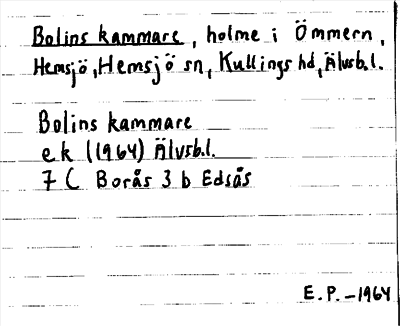 Bolins kammare, holme i Ömmern,
Hemsjö, Hemsjö sn, Kullings hd, Älvsb.l.
Bolins kammare
ek (1964) Älvsb.l.
7 C Borås 3 b Edsås
E.P. - 1964